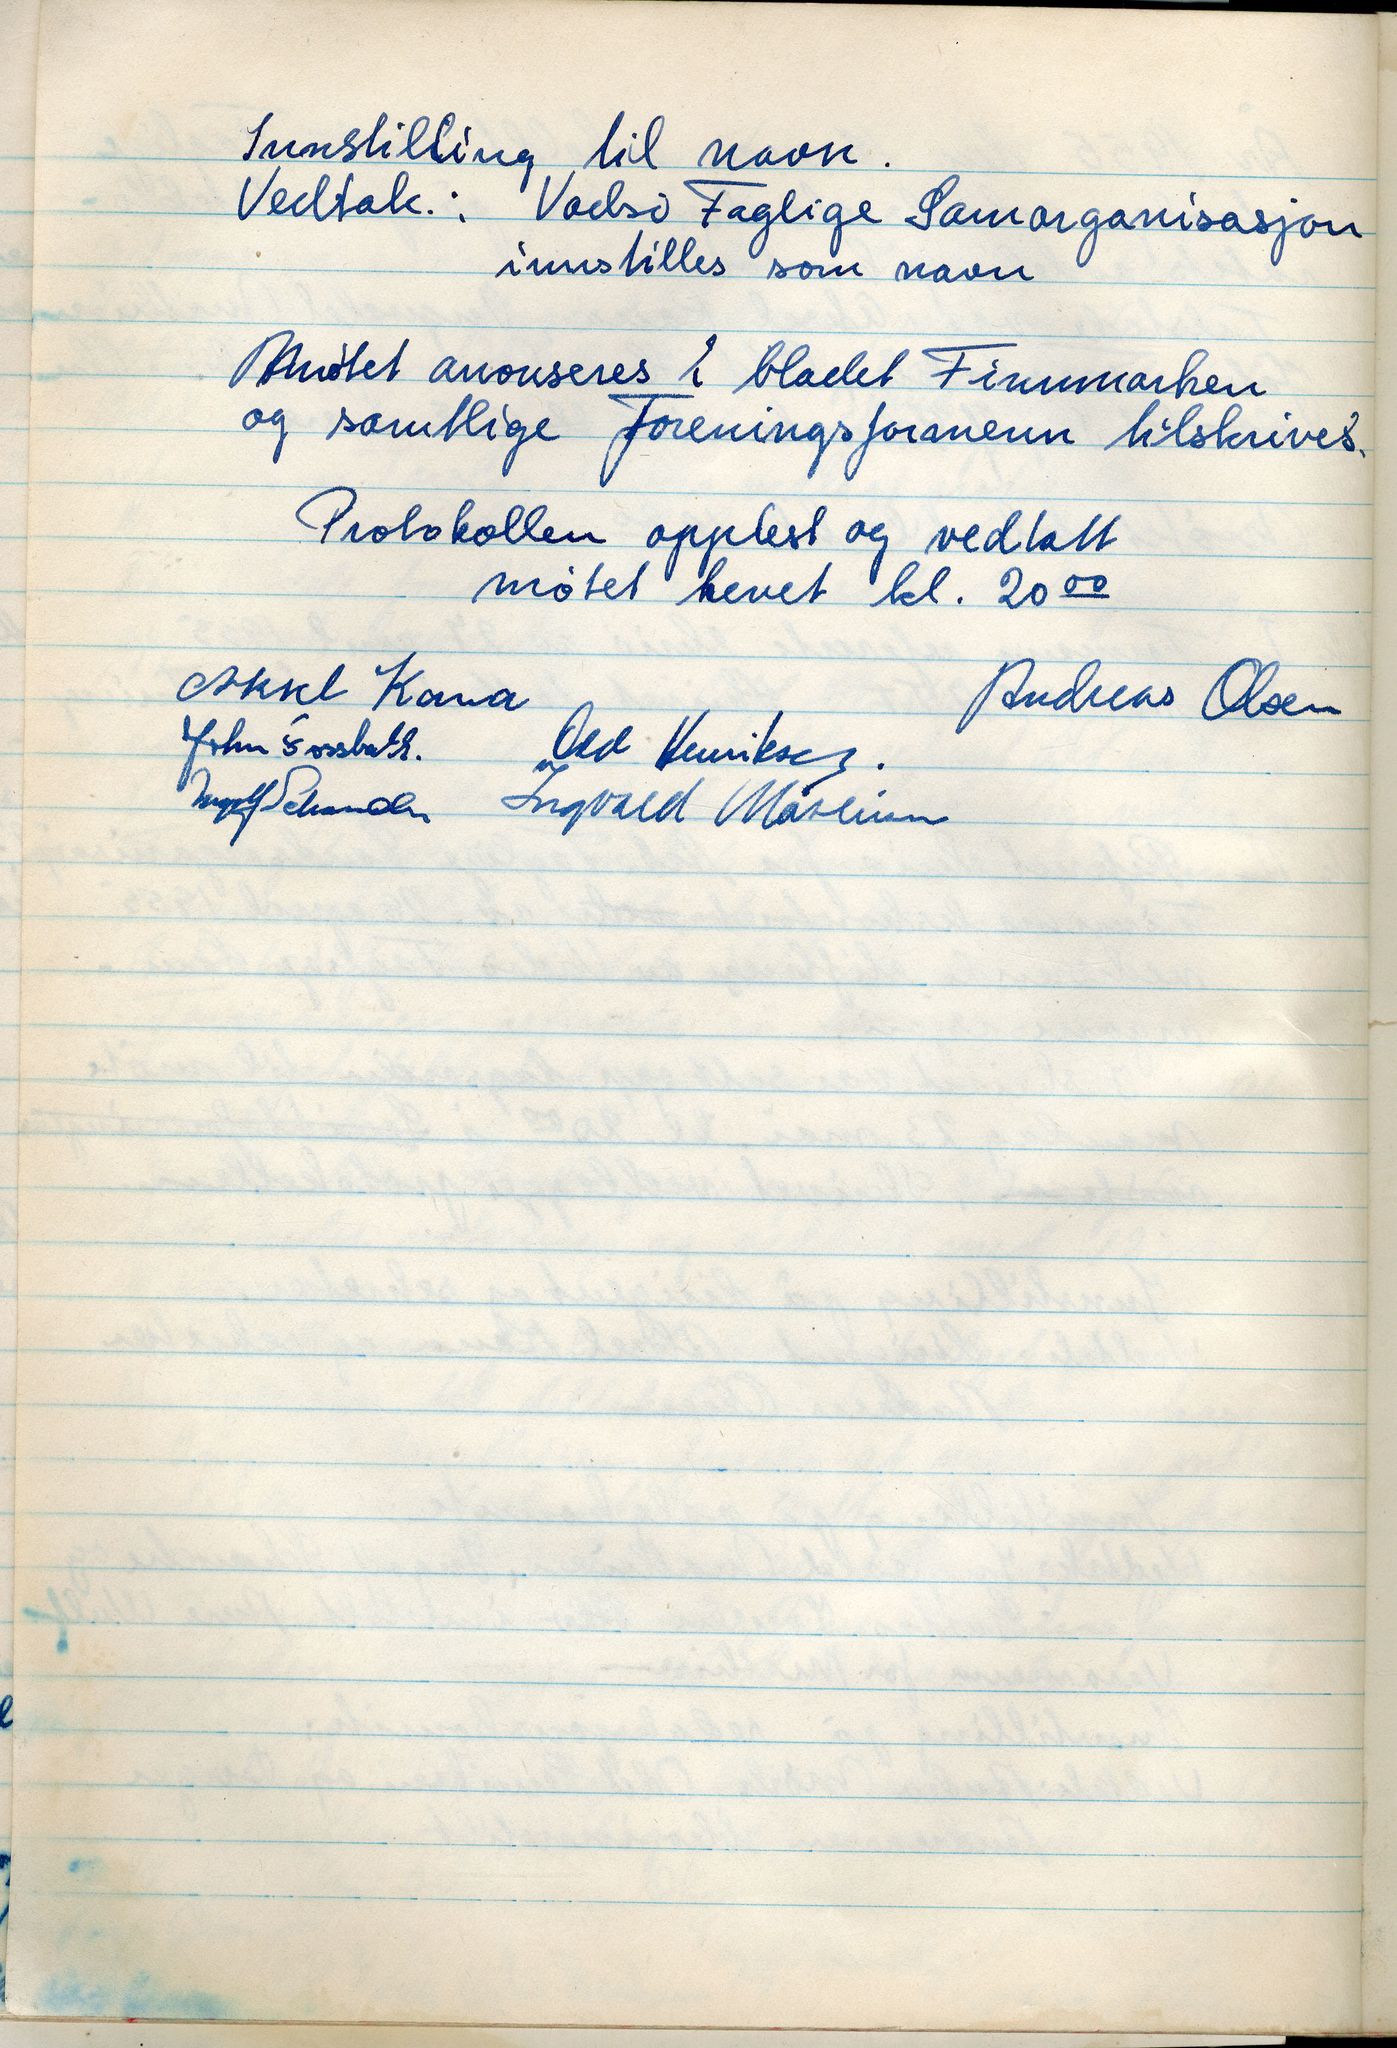 Innstilling til navn.
Vedtak.: Vadsø Faglige Samorganisasjon
innstilles som navn
Møtet anonseres i bladet Finnmarken
og samtlige Foreningsformenn tilskrives.
Protokollen opplest og vedtatt
møtet hevet kl. 20 00
Aksel Kana Andreas Olsen
John Fossbakk. Odd Henriksen.
Ingolf Schanche Ingvald Mathisen